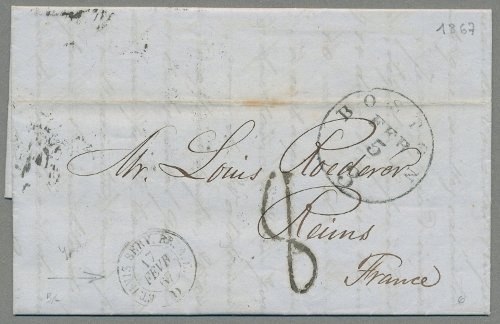 1867
BOSTON
FEB
5
Mr. Louis Roederer
Reims
France
8
17
FEVR
67